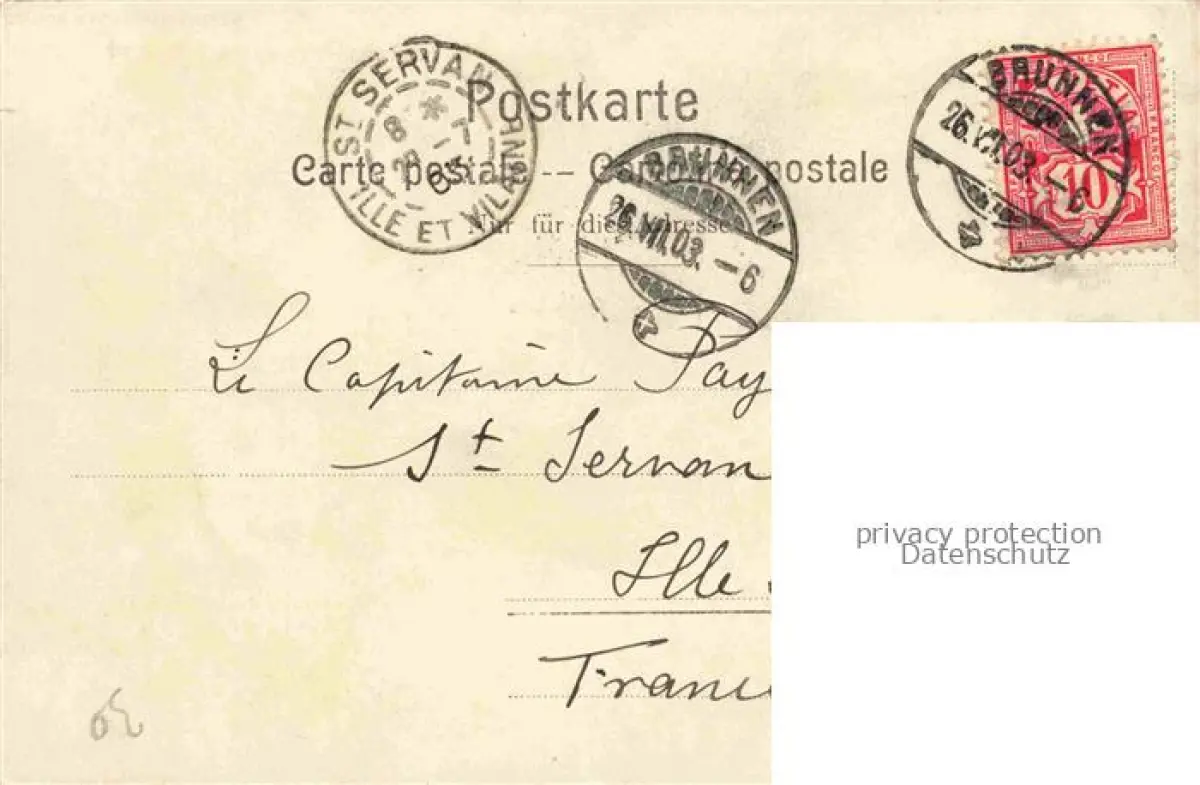 Postkarte
Carte postale -- Cartolina postale
Nur für die Adresse
ST SERVAN
ILLE ET VILAINE
8 * 7
03
BRUNNEN
26.VII.03. – 6
BRUNNEN
26.VII.03. – 6
10
Le Capitaine Pay
St Servan
Ille
France
privacy protection
Datenschutz